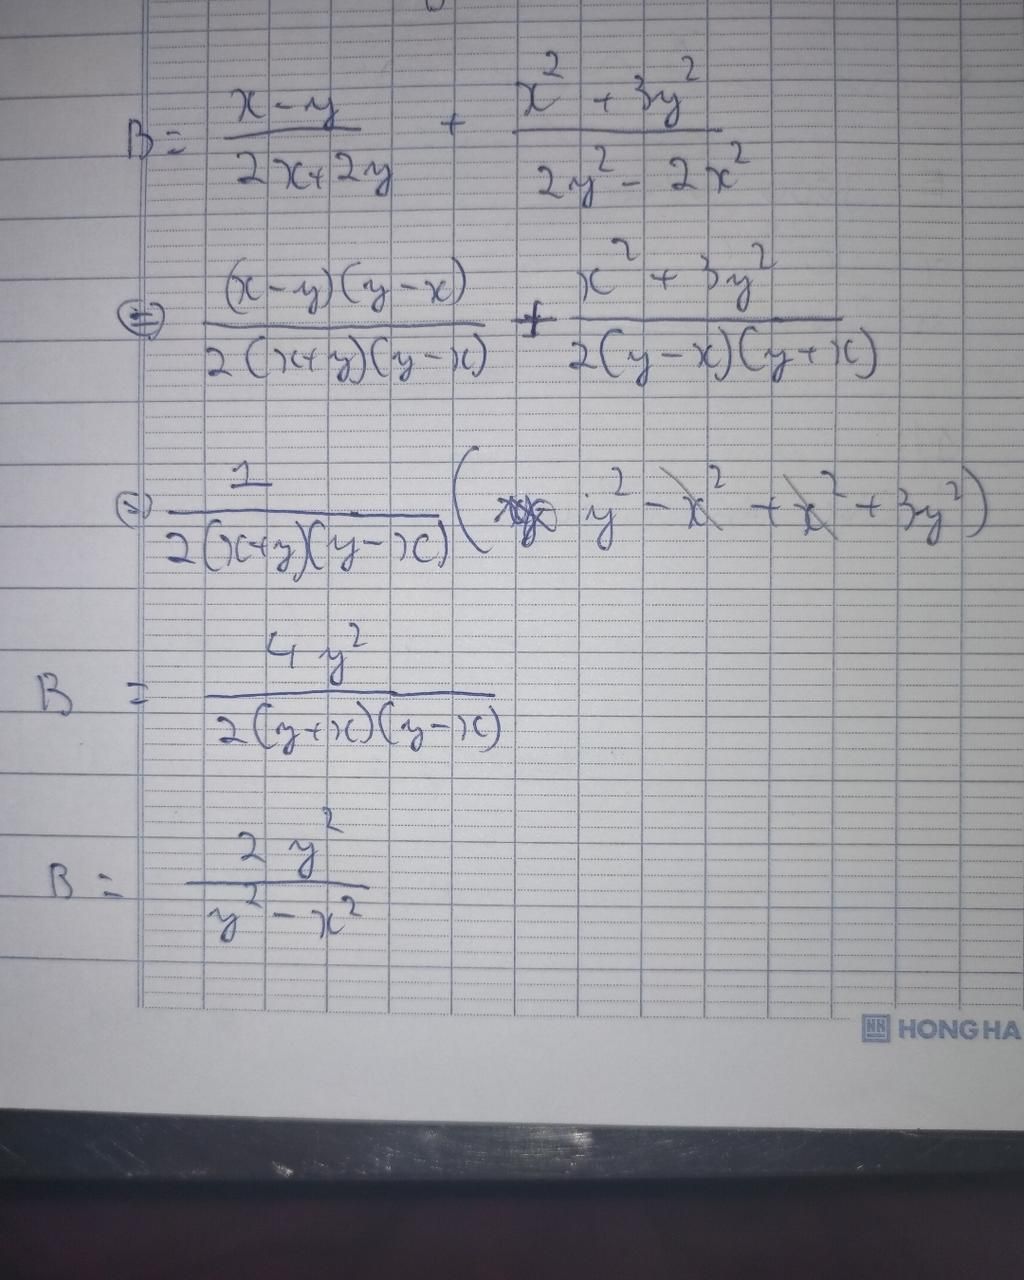 B = \frac{x-y}{2x+2y} + \frac{x^2+3y^2}{2y^2-2x^2}
= \frac{(x-y)(y-x)}{2(x+y)(y-x)} + \frac{x^2+3y^2}{2(y-x)(y+x)}
= \frac{1}{2(x+y)(y-x)} (y^2 - x^2 + x^2 + 3y^2)
B = \frac{4y^2}{2(y+x)(y-x)}
B = \frac{2y^2}{y^2-x^2}
HONG HA